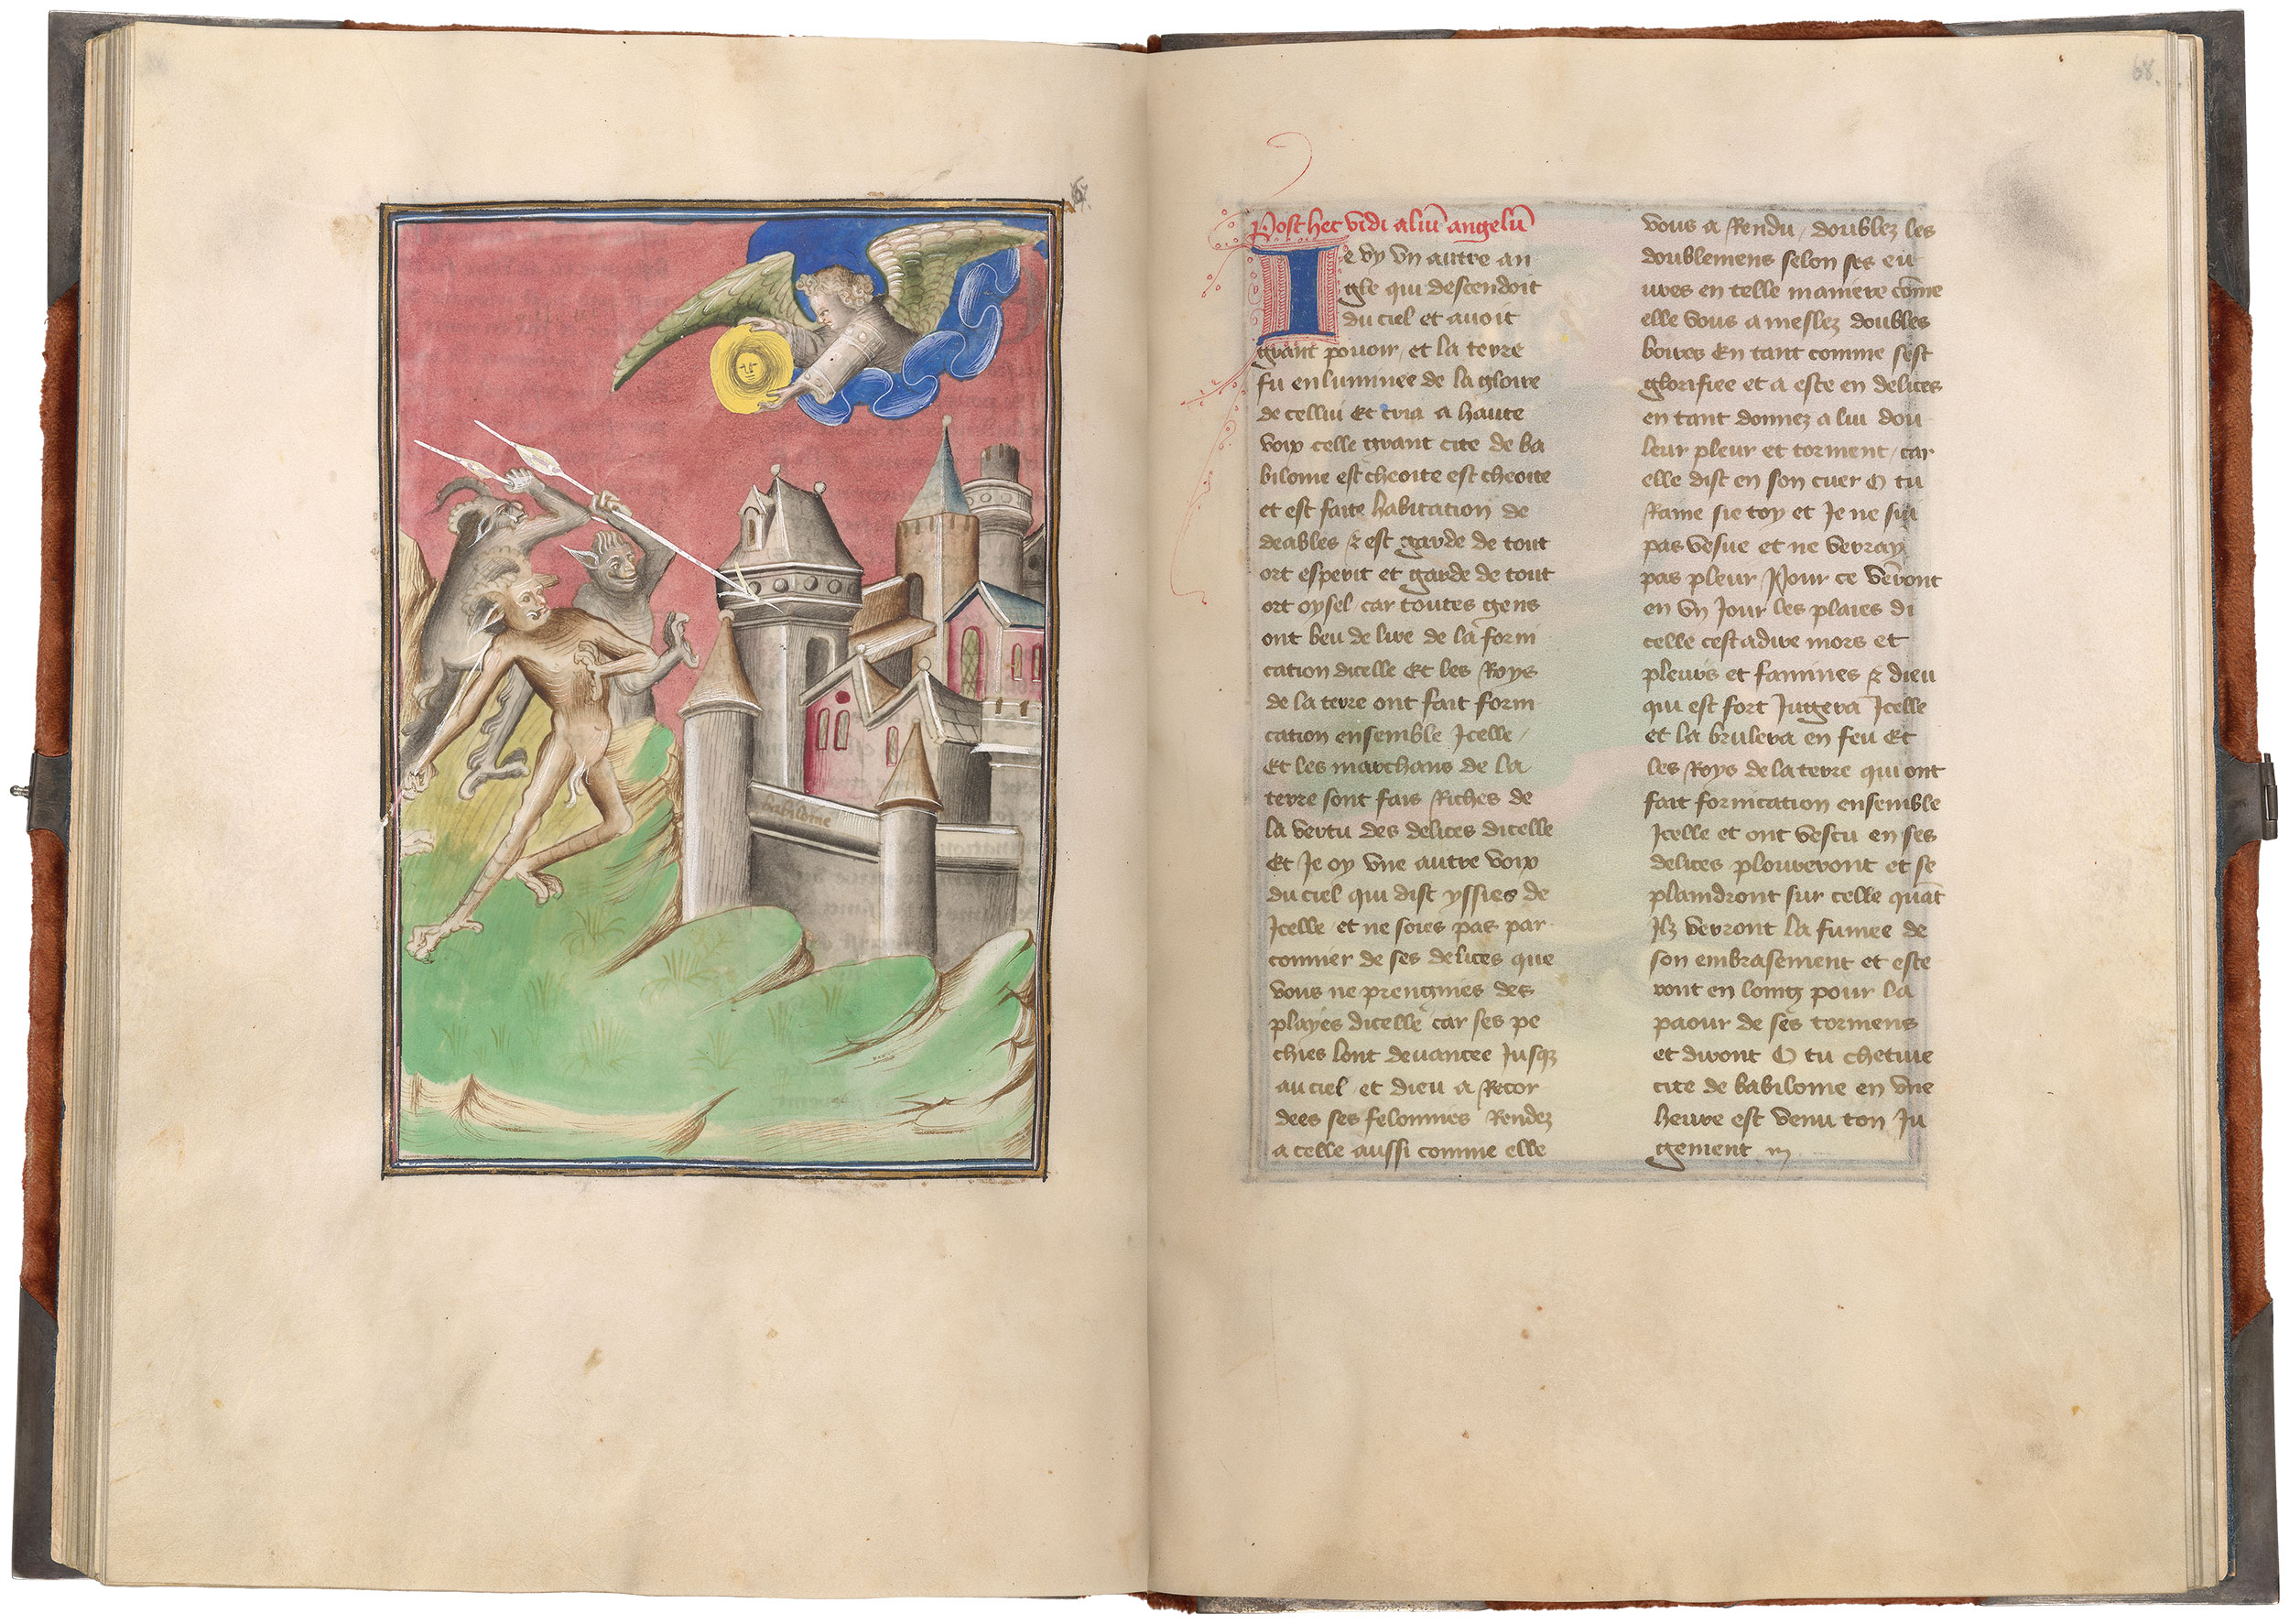 67
babilonie
68.
Post hec vidi aliū angelū
Je vy vn autre an
gle qui descendoit
du ciel et auoit
grant pouoir et la terre
fu enluminee de la gloire
de cellui Et cria a haute
voix celle grant cite de ba
bilonie est cheoite est cheoite
et est faite habitation de
deables & est garde de tout
ort esperit et garde de tout
ort oysel car toutes gens
ont beu de lire de la forni
cation dicelle Et les Roys
de la terre ont fait forni
cation ensemble Icelle /
Et les marchans de la
terre sont fais Riches de
la vertu des delices dicelle
Et Je oy vne autre voix
du ciel qui dist yssies de
Icelle et ne soies pas par
connier de ses delices que
vous ne prengnies des
playes dicelle car ses pe
chies lont deuancee Jusqz
au ciel et dieu a Recor
dees ses felonnies Rendez
a celle aussi comme elle
vous a Rendu / doublez les
doublemens selon ses eu
ures en telle maniere cōme
elle vous a meslez doubles
boires En tant comme sest
glorifiee et a este en delices
en tant donnez a lui dou
leur pleur et torment / car
elle dist en son cuer O tu
Raine sie toy et Je ne sui
pas vesue et ne verray
pas pleur / Pour ce vēront
en vn Jour les plaies di
celle cest adire mors et
pleurs et famines & dieu
qui est fort Juggera Icelle
et la brulera en feu Et
les Roys de la terre qui ont
fait fornication ensemble
Icelle et ont vescu en ses
delices plourreront et se
plaindront sur celle quāt
Ilz verront la fumee de
son embrasement et este
ront en loing pour la
paour de ses tormens
et diront O tu chetiue
cite de babilonie en vne
heure est venu ton Ju
gement